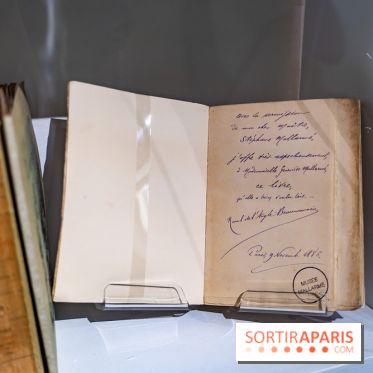 Avec la permission
de mon cher Maître,
Stéphane Mallarmé,
j'offre très respectueusement,
à Mademoiselle Geneviève Mallarmé,
ce livre,
qu'elle a bien voulu lire...
Paris, 9 Novemb. 1885.
MUSÉE
MALLARMÉ
SORTIRAPARIS
.COM